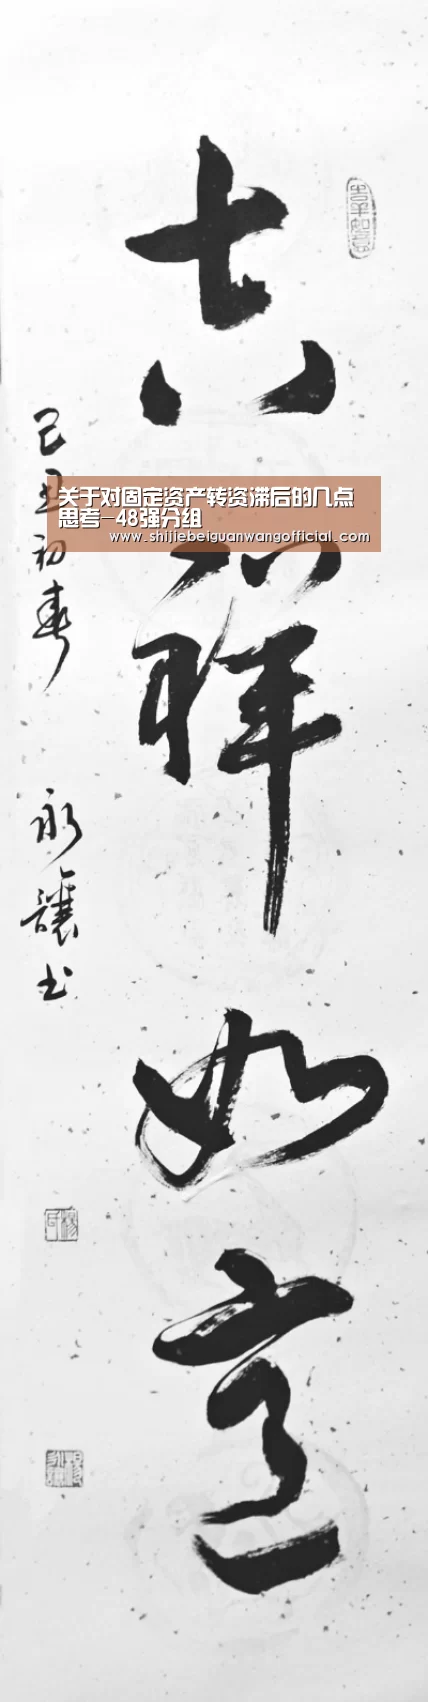 吉祥如意
己丑初春
永讓书
关于对固定资产转资滞后的几点
思考-48强分组
www.shijiebeiguanwangofficial.com